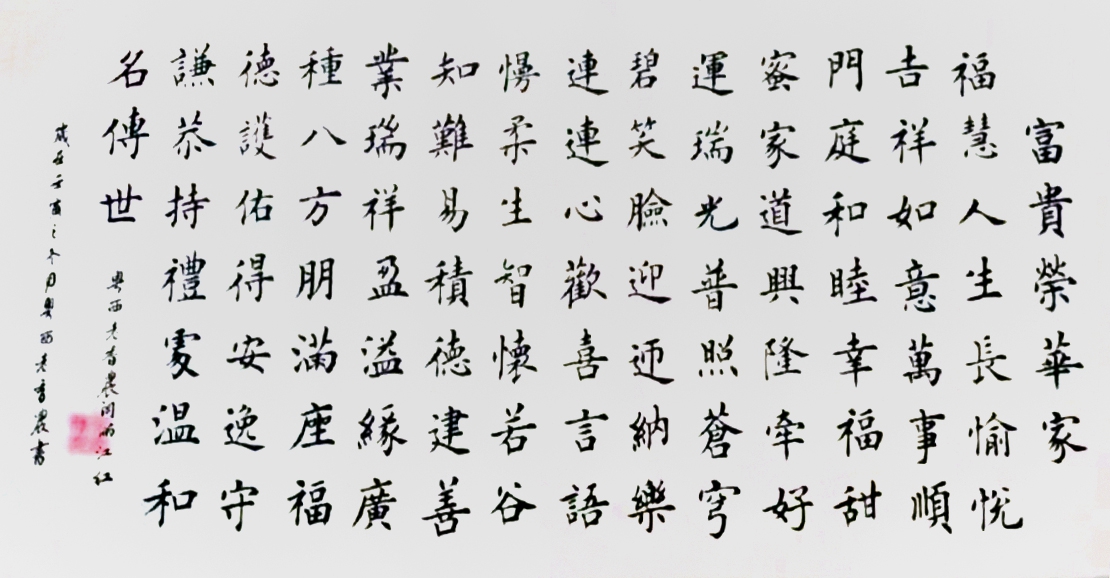 富貴榮華家
福慧人生長愉悅
吉祥如意萬事順
門庭和睦幸福甜
蜜家道興隆牽好
運瑞光普照蒼穹
碧笑臉迎迊納樂
連連心歡喜言語
慢柔生智懷若谷
知難易積德建善
業瑞祥盈溢緣廣
種八方朋滿座福
德護佑得安逸守
謙恭持禮處温和
名傳世
粤西老者農江红
歲在壬寅之冬月粤西老者農書